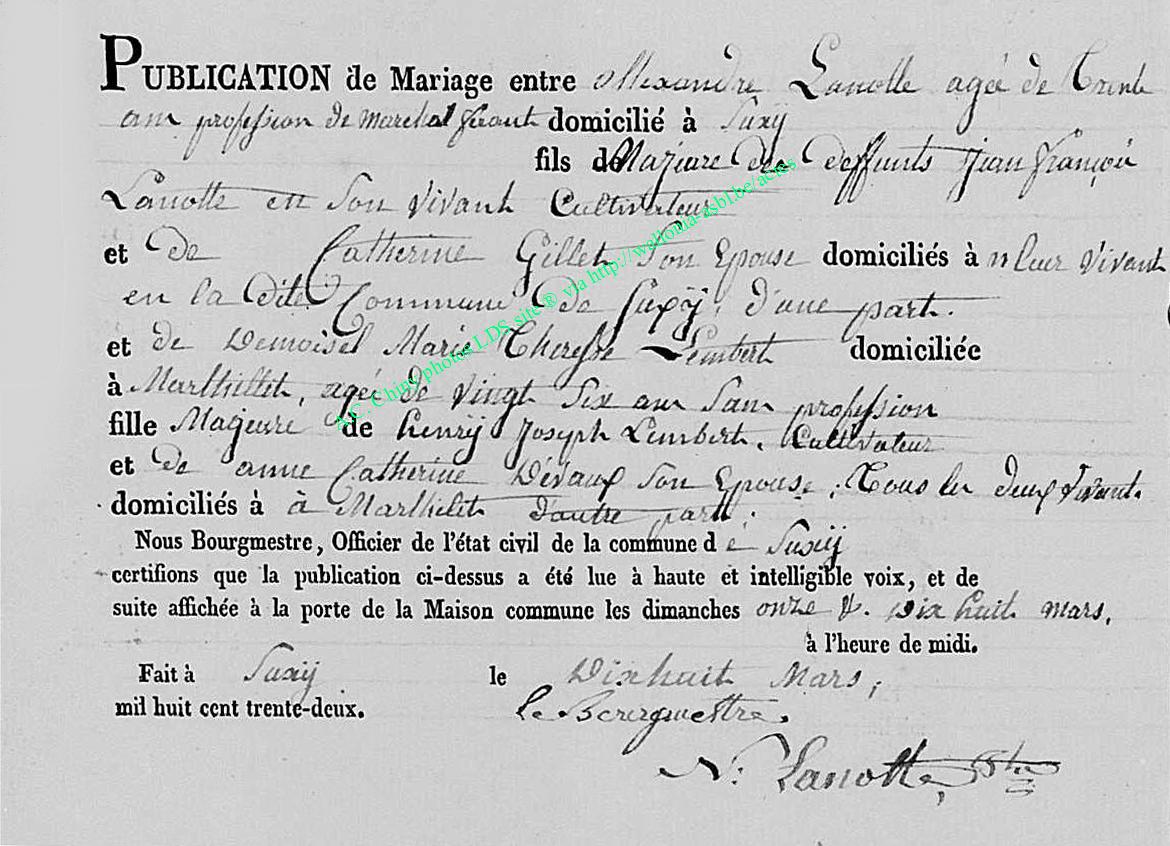 PUBLICATION de Mariage entre Allexandre Lanotte agée de Trente
ans profession de Marchal feront domicilié à Suxÿ
fils de Majeure des deffunts Jean François
Lanotte en Son Vivant Cultivateur
et de Catherine Gillet Son Epouse domiciliés à n leur Vivant
en la dite Commune de Suxÿ, d'une part.
et de Demoisel Marie Theresse Lembert domiciliée
à Marthillet, agée de Vingt Six ans Sans profession
fille Majeure de henrÿ Joseph Lembert, Cultivateur
et de anne Catherine Devaux Son Epouse, Tous les deux Vivant
domiciliés à à Marthilet d'autre part.
Nous Bourgmestre, Officier de l'état civil de la commune d e Suxÿ
certifions que la publication ci-dessus a été lue à haute et intelligible voix, et de
suite affichée à la porte de la Maison commune les dimanches onze &. dix huit mars,
à l'heure de midi.
Fait à Suxÿ le Dixhuit Mars,
mil huit cent trente-deux.
Le Bourgmestre.
N: Lanotte,
A.C. Chiny photos LDS site ® via http://wallonia-asbl.be/actes